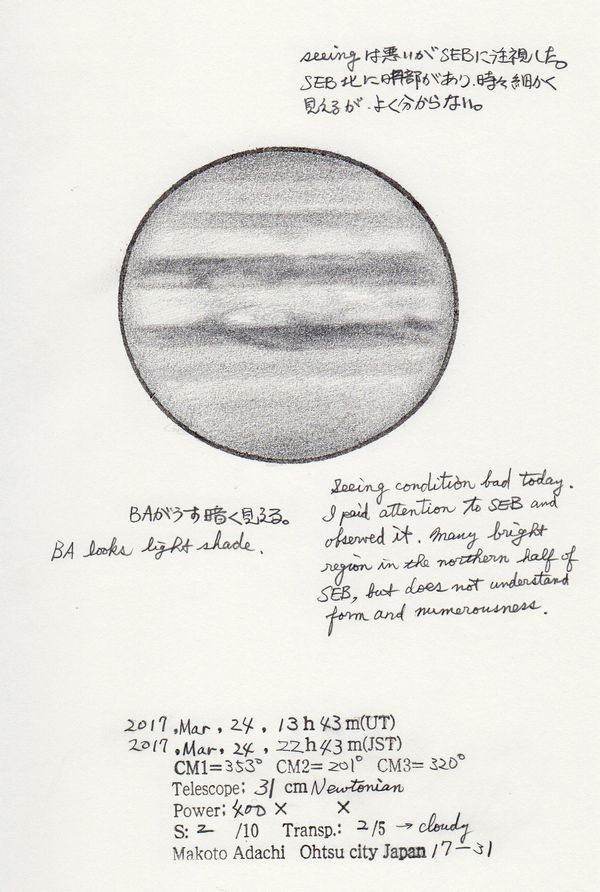 seeing は悪いがSEBに注視した。
SEB北に明部があり、時々細かく
見えるが、よく分からない。
BAがうす暗く見える。
BA looks light shade.
Seeing condition bad today.
I paid attention to SEB and
observed it. Many bright
region in the northern half of
SEB, but does not understand
form and numerousness.
2017, Mar, 24, 13h43m(UT)
2017, Mar, 24, 22h43m(JST)
CM1=353° CM2=201° CM3=320°
Telescope; 31 cm Newtonian
Power; 400× ×
S: 2 /10 Transp.: 2/5 → cloudy
Makoto Adachi Ohtsu city Japan 17-31